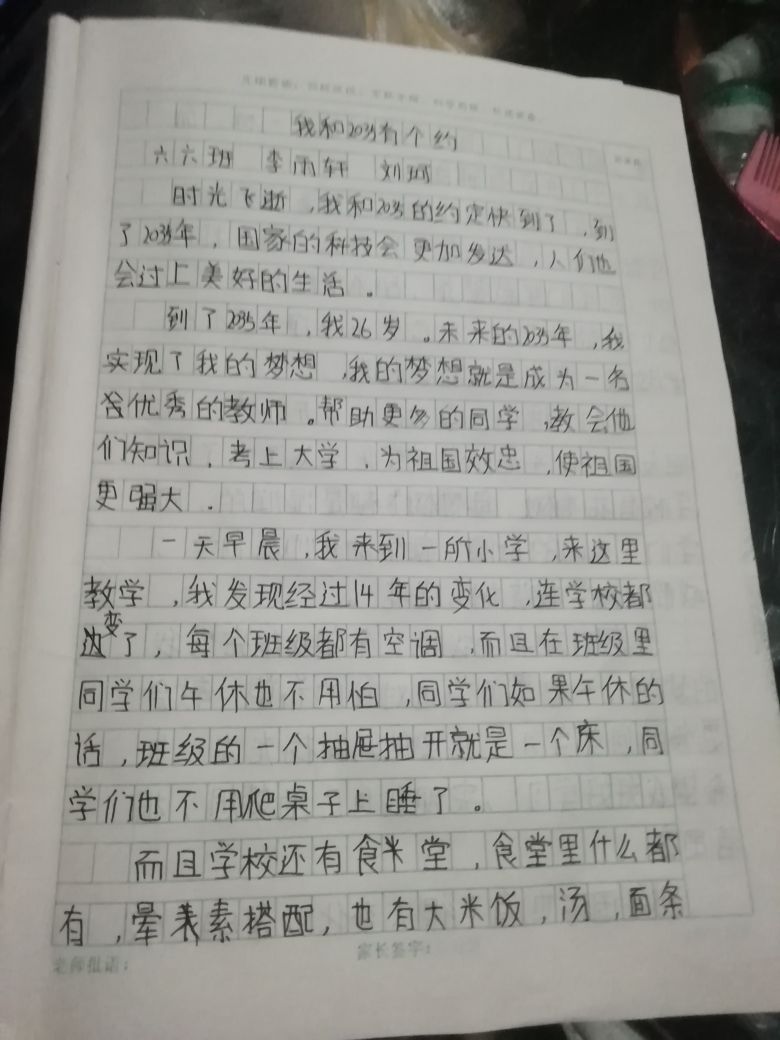 我和2035有个约
六六班 李雨轩 刘珂
时光飞逝,我和2035的约定快到了,到
了2035年,国家的科技会更加发达,人们也
会过上美好的生活。
到了2035年,我26岁。未来的2035年,我
实现了我的梦想,我的梦想就是成为一名
优秀的教师。帮助更多的同学,教会他
们知识,考上大学,为祖国效忠,使祖国
更强大.
一天早晨,我来到一所小学,来这里
教学,我发现经过14年的变化,连学校都
变了,每个班级都有空调,而且在班级里
同学们午休也不用怕,同学们如果午休的
话,班级的一个抽屉抽开就是一个床,同
学们也不用爬桌子上睡了。
而且学校还有食堂,食堂里什么都
有,晕素搭配,也有大米饭,汤,面条
老师批语:
家长签字: